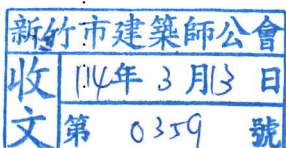 新竹市建築師公會
收文
114年3月13日
第0359號